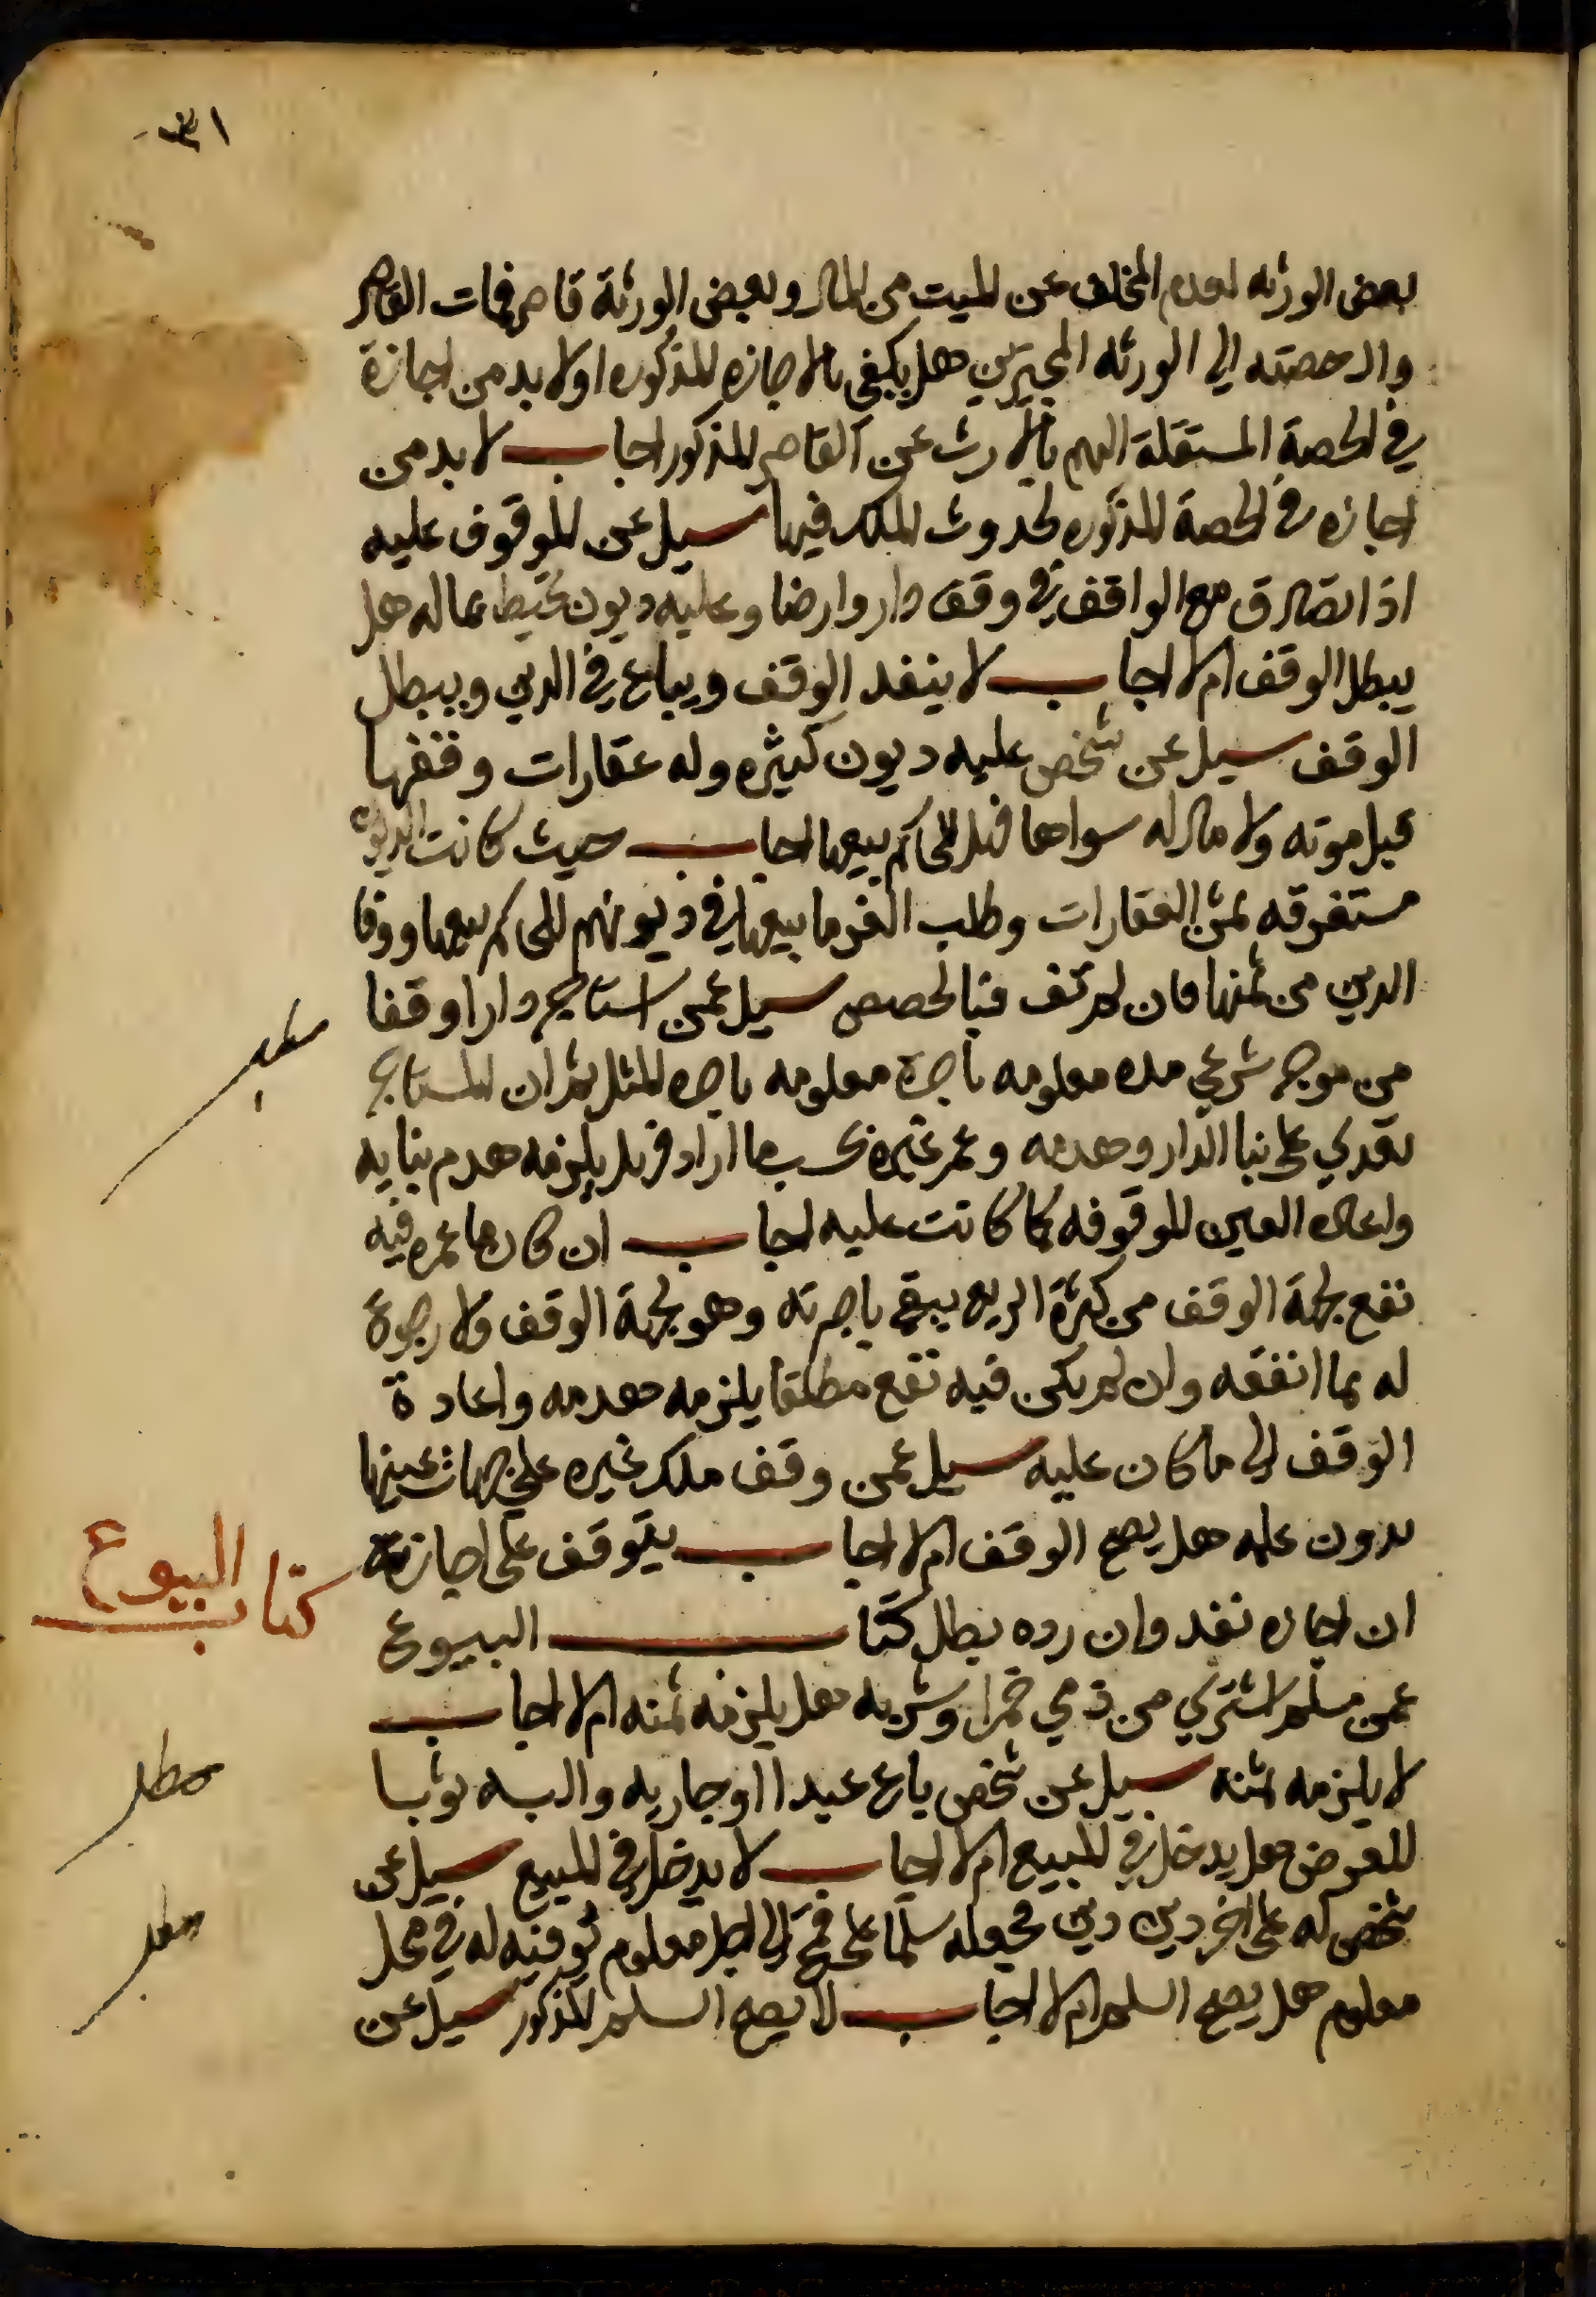 ٣١
بعض الورثه لعدم المخلف عن الميت من المال وبعض الورثة قاصر فمات القاصر
وال حصته الي الورثه المجيزين هل يكفي بالاجازه المذكوره اولا بد من اجازة
في الحصة المستقلة اليهم بالارث عن القاصر المذكور اجاب لا بد من
اجازه في الحصة المذكوره لحدوث الملك فيها سيل عن الموقوف عليه
اذا تصادق مع الواقف في وقف دار وارضا وعليه ديون تحيط بماله هل
يبطل الوقف ام لا اجاب لا ينفد الوقف ويباع في الدين ويبطل
الوقف سيل عن شخص عليه ديون كثيره وله عقارات وقفها
قبل موته ولا مال له سواها فهل للحاكم بيعها اجاب حيث كانت الديون
مستغرقه لثمن العقارات وطلب الغرما بيعها في ديونهم للحاكم بيعها ووفا
الدين من ثمنها فان لم تف فبالحصص سيل عمن استاجر دارا وقفا
من موجر شرعي مده معلومه باجرة معلومه باجره المثل ثم ان المستاجر
تعدي علي بنا الدار وهدمه وعمر غيره بحسب ما اراد فهل يلزمه هدم بنايه
واعاده العين الموقوفه كما كانت عليه اجاب ان كان ما عمره فيه
نفع لجهة الوقف من كثرة الريع يبقي باجرته وهو لجهة الوقف ولا رجوع
له بما انفقه وان لم يكن فيه نفع مطلقا يلزمه هدمه واعادة
الوقف الي ما كان عليه سيل عمن وقف ملك غيره علي جهات عينها
بدون علمه هل يصح الوقف ام لا اجاب يتوقف علي اجازته
ان اجازه نفد وان رده بطل كتاب البيوع
كتاب البيوع
عمن مسلم اشتري من ذمي خمرا وشربه هل يلزمه ثمنه ام لا اجاب
لا يلزمه ثمنه سيل عن شخص باع عبدا او جاريه والبسه ثوبا
للعرض هل يدخل في المبيع ام لا اجاب لا يدخل في المبيع سيل عن
شخص له علي اخر دين دين فجعله سلما علي قمح الي اجل معلوم يوفيه له في محل
معلوم هل يصح السلم ام لا اجاب لا يصح السلم المذكور سيل عن
مطلب
مطلب
مطلب